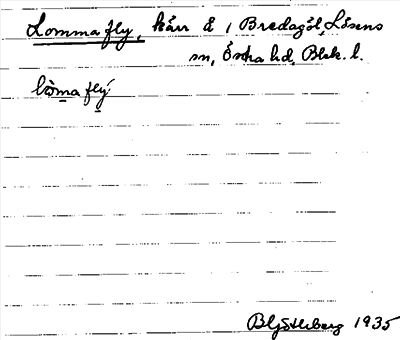 Lomma fly, kärr å 1 Bredagöl, Lösens
sn, Östra hd, Blek. l.
lòma flý
B Ljöstberg 1935